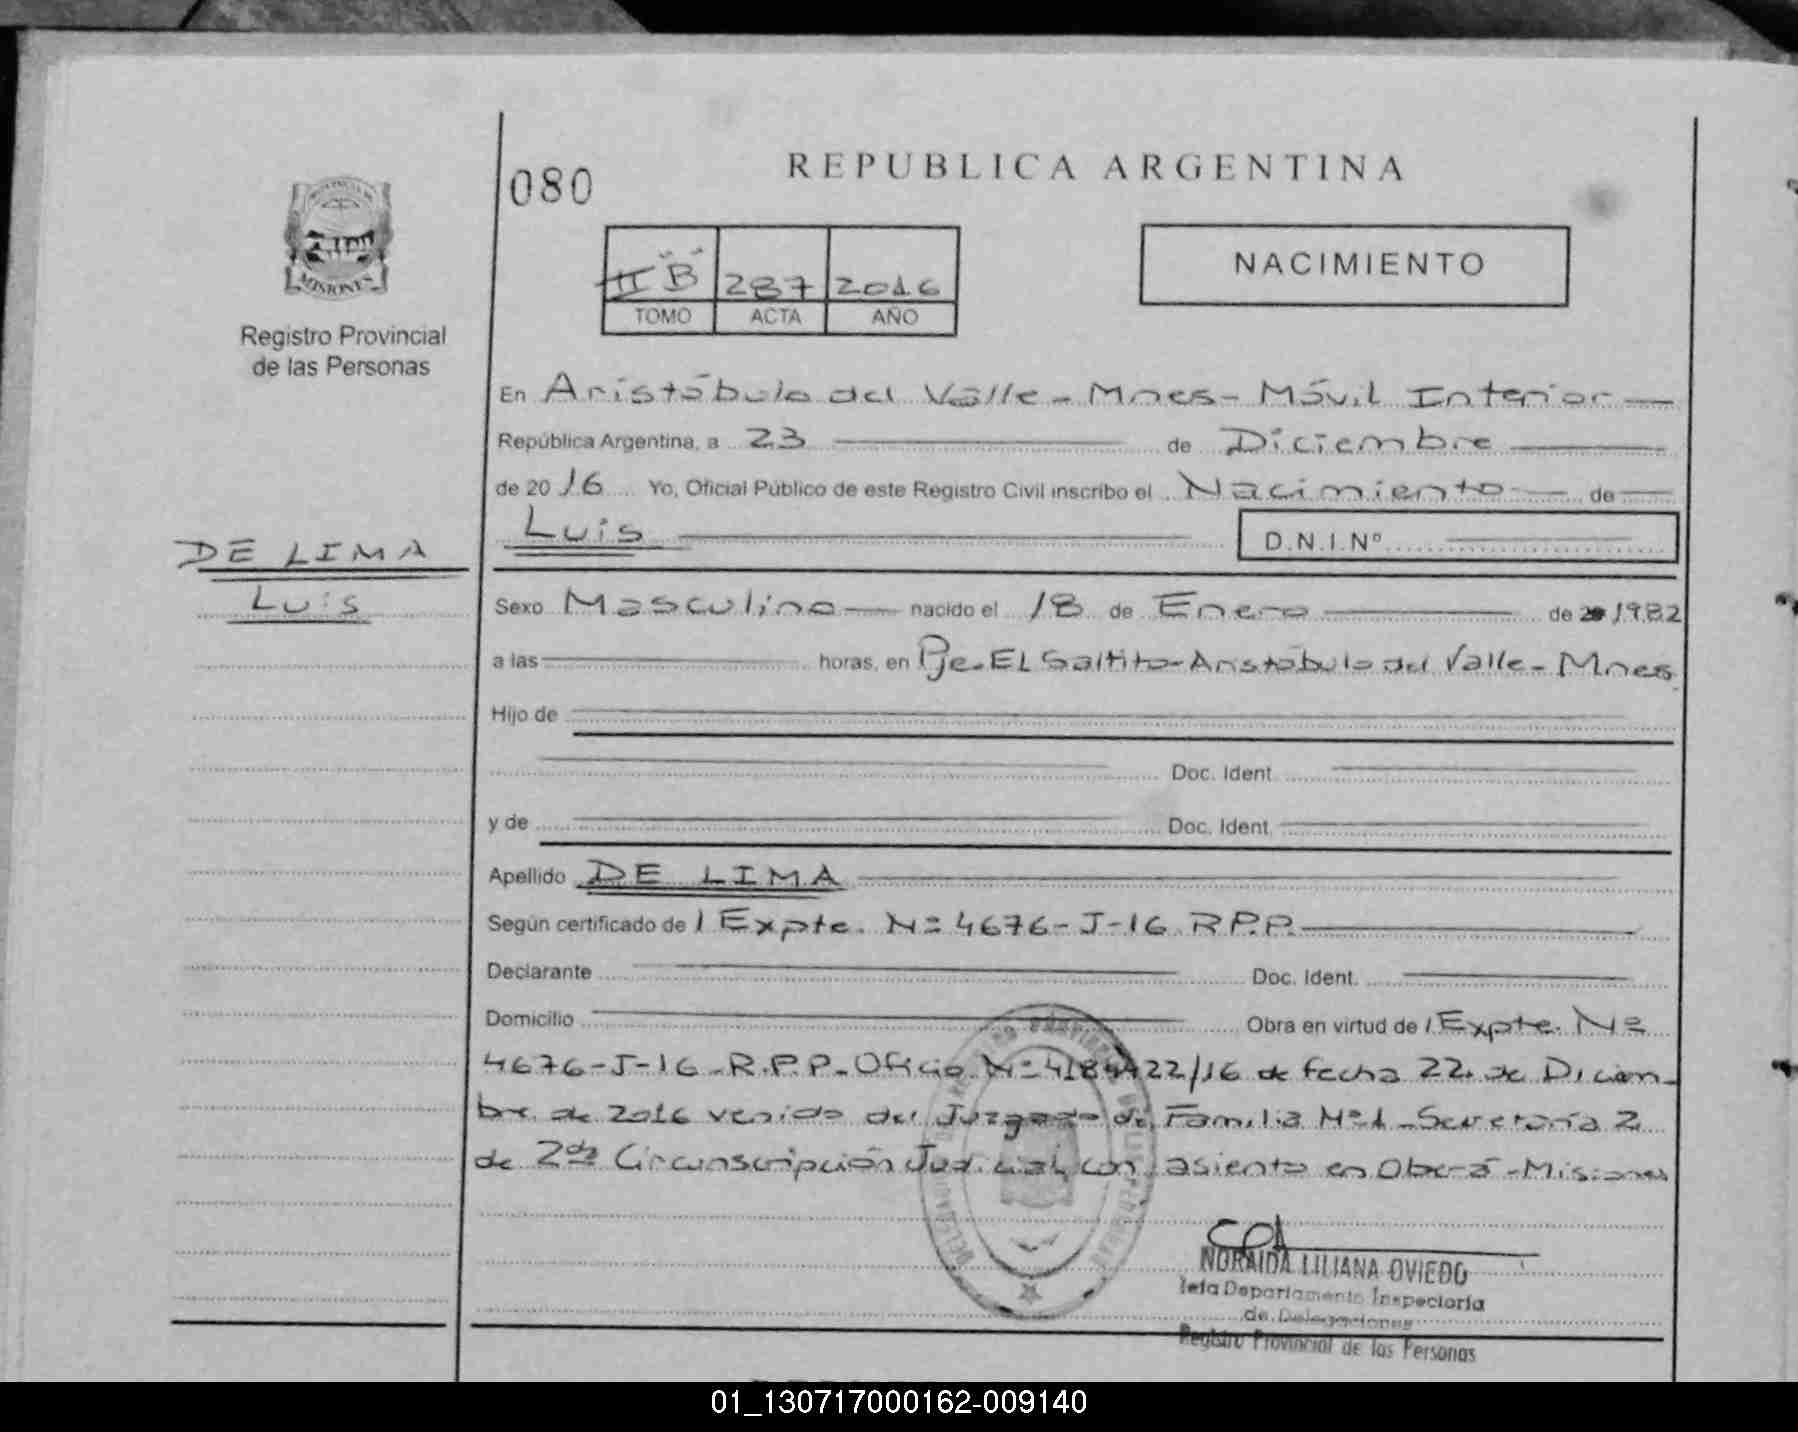 REPUBLICA ARGENTINA
080
NACIMIENTO
II "B" 287 2016
TOMO ACTA AÑO
MISIONES
Registro Provincial
de las Personas
En Aristóbulo del Valle - Mnes - Móvil Interior
República Argentina, a 23 de Diciembre
de 2016 Yo, Oficial Público de este Registro Civil inscribo el Nacimiento de
Luis D.N.I.Nº
DE LIMA
Luis
Sexo Masculino nacido el 18 de Enero de 1982
a las horas, en Pje. EL Saltito - Aristóbulo del Valle - Mnes
Hijo de
Doc. Ident.
y de Doc. Ident.
Apellido DE LIMA
Según certificado de / Expte. Nº 4676-J-16 R.P.P.
Declarante Doc. Ident.
Domicilio Obra en virtud de / Expte. Nº
4676-J-16-R.P.P- Oficio Nº 22/16 de fecha 22 de Diciem-
bre de 2016 venido del Juzgado de Familia Nº1 - Secretaría 2
de 2da Circunscripción Judicial, con asiento en Oberá - Misiones
NORAIDA LILIANA OVIEDO
Jefa Departamento Inspectoría
de Delegaciones
Registro Provincial de las Personas
01_130717000162-009140